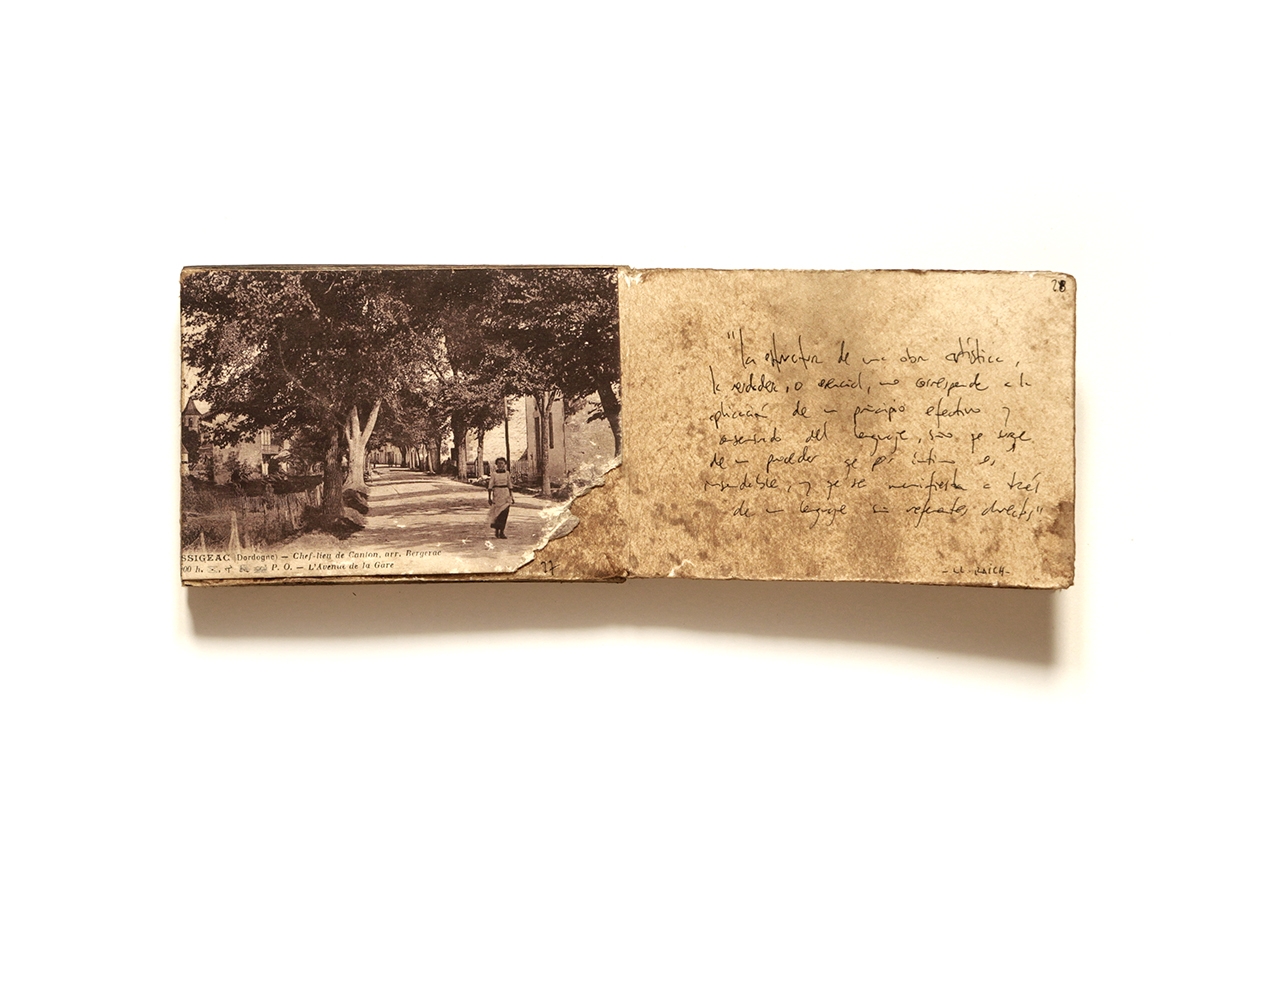 SSIGEAC (Dordogne) — Chef-lieu de Canton, arr. Bergerac
00 h. P. O. — L'Avenue de la Gare
27
28
"La estructura de una obra artística,
la verdadera, o esencial, no corresponde a la
aplicación de un principio efectivo y
consensuado del lenguaje, sino que surge
de un proceder que por íntimo es
insondable, y que se manifiesta a través
de un lenguaje sin referentes directos"